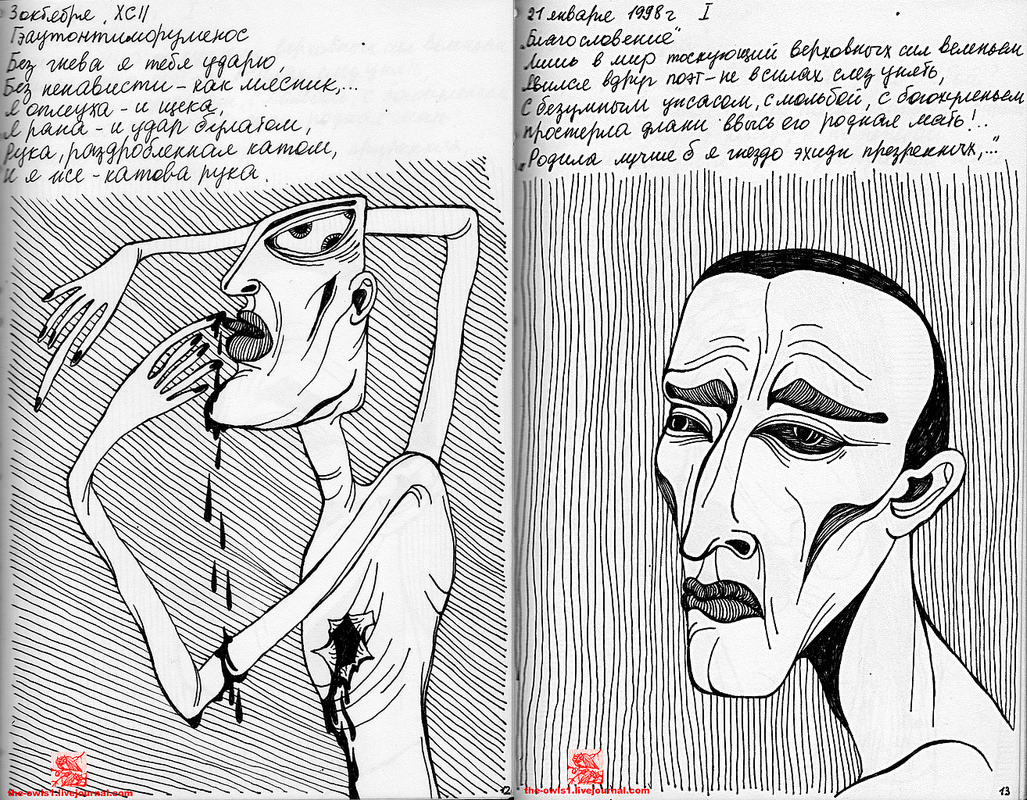 3 октября, XCII
Гэаутонтиморуменос
Без гнева я тебя ударю,
Без ненависти - как мясник,...
Я оплеуха - и щека,
Я рана - и удар булатом,
Рука, раздробленная катом,
И я же - катова рука.
the-owls1.livejournal.com
12
21 января 1998 г I
„Благословение"
Лишь в мир тоскующий верховных сил веленьем
Явился вдруг поэт - не в силах слез унять,
С безумным ужасом, с мольбой, с богохуленьем
Простерла длани ввысь его родная мать!..
„Родила лучше б я гнездо эхидн презренных,..."
the-owls1.livejournal.com
13